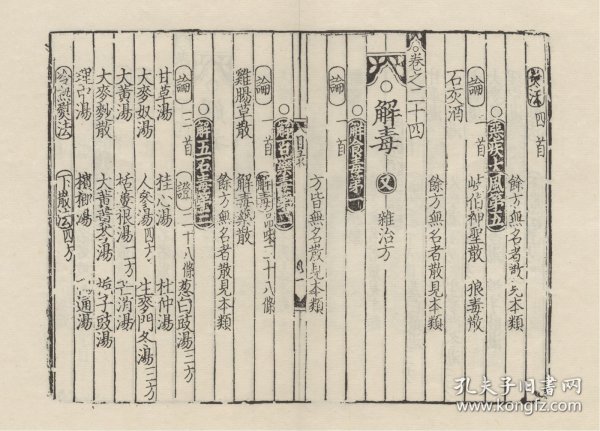 灸法四首
餘方無名者散見本類
○惡疾大風第五
論一首 岐伯神聖散 狼毒散
石灰酒
餘方無名者散見本類
卷之二十四
○解毒 又 雜治方
○解食毒第一
論一首
方皆無名散見本類
○解百藥毒第二
論一首 解毒 二十八條
雞腸草散 解毒藥散
餘方無名者散見本類
○解五石毒第三
論三首 證二十八條 葱白豉湯二方
甘草湯 桂心湯 杜仲湯
大麥奴湯 人參湯四方 生麥門冬湯二方
大黃湯 栝蔞根湯二方 芒消湯
大麥麨散 大黃黃芩湯 梔子豉湯
理中湯 通湯
冷熱法 下散法四方
孔夫子旧书网
www.kongfz.com